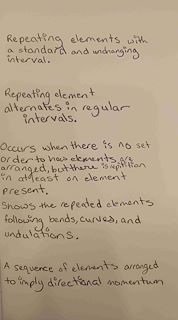 Repeating elements with
a standard and unchanging
interval.
Repeating element
alternates in regular
intervals.
Occurs when there is no set
order to how elements are
arranged, but there is repitition
in at least on element
present.
Shows the repeated elements
following bends, curves, and
undulations.
A sequence of elements arranged
to imply directional momentum